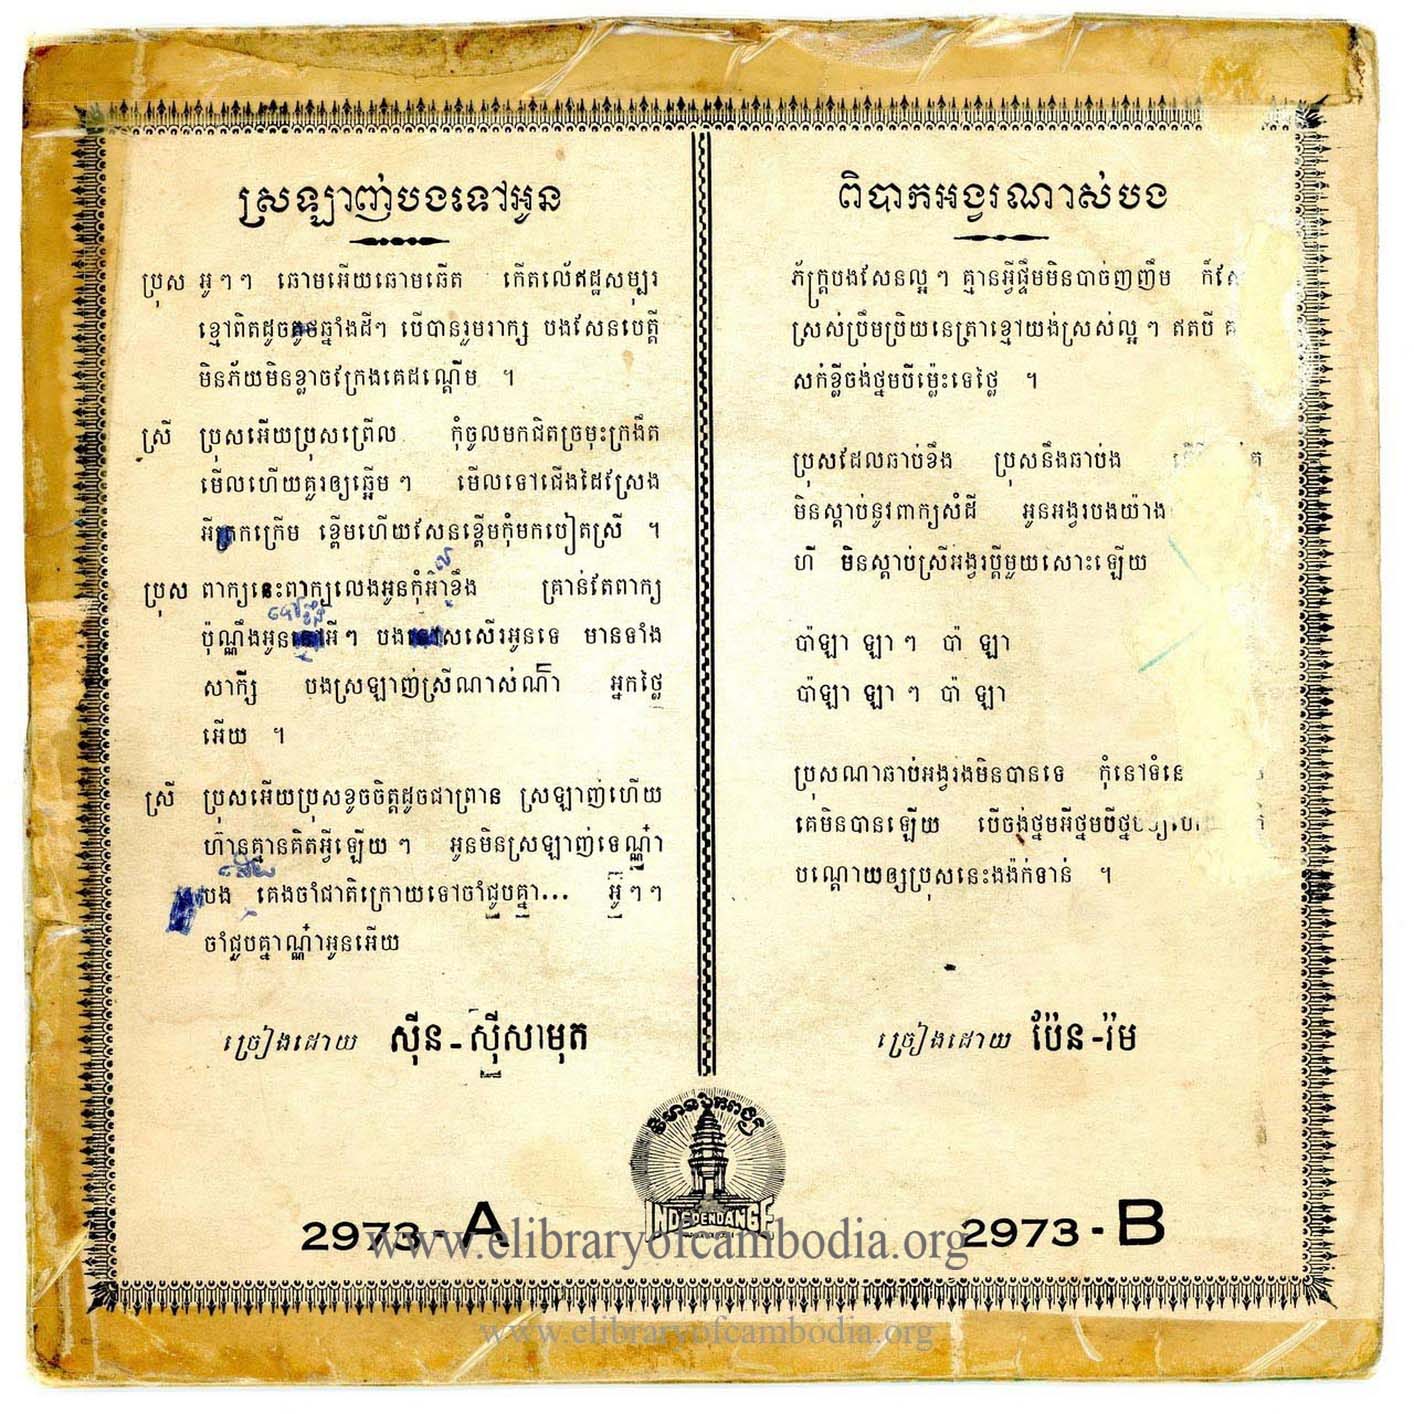 ស្រឡាញ់បងទៅអូន
ប្រុស អូៗៗ ឆោមអើយឆោមឆើត កើតលើឥដ្ឋសម្បុរ
ខ្មៅពិតដូចគូថឆ្នាំងដីៗ បើបានរួមរាក្ស បងសែនបេត្តី
មិនភ័យមិនខ្លាចក្រែងគេដណ្ដើម ។
ស្រី ប្រុសអើយប្រុសព្រើល កុំចូលមកជិតច្រមុះក្រងឹត
មើលហើយគួរឲ្យឆ្អើមៗ មើលទៅជើងដៃស្រែង
អីត្រកក្រើម ខ្ពើមហើយសែនខ្ពើមកុំមកបៀតស្រី ។
ប្រុស ពាក្យនេះពាក្យលេងអូនកុំអាលខឹង គ្រាន់តែពាក្យ
ប៉ុណ្ណឹងអូនទៅខឹងអីៗ បង សសើរអូនទេ មានទាំង
សាក្សី បងស្រឡាញ់ស្រីណាស់ណ៎ា អ្នកថ្លៃ
អើយ ។
ស្រី ប្រុសអើយប្រុសខូចចិត្តដូចជាព្រាន ស្រឡាញ់ហើយ
ហ៊ានគ្មានគិតអ្វីឡើយៗ អូនមិនស្រឡាញ់ទេណ្ណ៎ា
បង គេងចាំជាតិក្រោយទៅចាំជួបគ្នា... អូៗៗ
ចាំជួបគ្នាណ្ណ៎ាអូនអើយ
ច្រៀងដោយ ស៊ីន-ស៊ីសាមុត
2973-A
ពិបាកអង្វរណាស់បង
ភ័ក្ត្របងសែនល្អៗ គ្មានអ្វីផ្ទឹមមិនបាច់ញញឹម ក៏សែ
ស្រស់ប្រឹមប្រិយនេត្រាខ្មៅយង់ស្រស់ល្អៗ ឥតបី គ
សក់ខ្លីចង់ថ្នមបីម្ល៉េះទេថ្លៃ ។
ប្រុសដែលឆាប់ខឹង ប្រុសនឹងឆាប់ង
មិនស្ដាប់នូវពាក្យសំដី អូនអង្វរបងយ៉ាង
ហី មិនស្ដាប់ស្រីអង្វរប្ដីមួយសោះឡើយ
ប៉ាឡា ឡាៗ ប៉ា ឡា
ប៉ាឡា ឡាៗ ប៉ា ឡា
ប្រុសណាឆាប់អង្វរងមិនបានទេ កុំនៅទំនេ
គេមិនបានឡើយ បើចង់ថ្នមអីថ្នមបីថ្ន
បណ្ដោយឲ្យប្រុសនេះងង៉ក់ទាន់ ។
ច្រៀងដោយ ប៉ែន-រ៉ម
2973-B
វិមានឯករាជ្យ
INDEPENDANCE
www.elibraryofcambodia.org
www.elibraryofcambodia.org